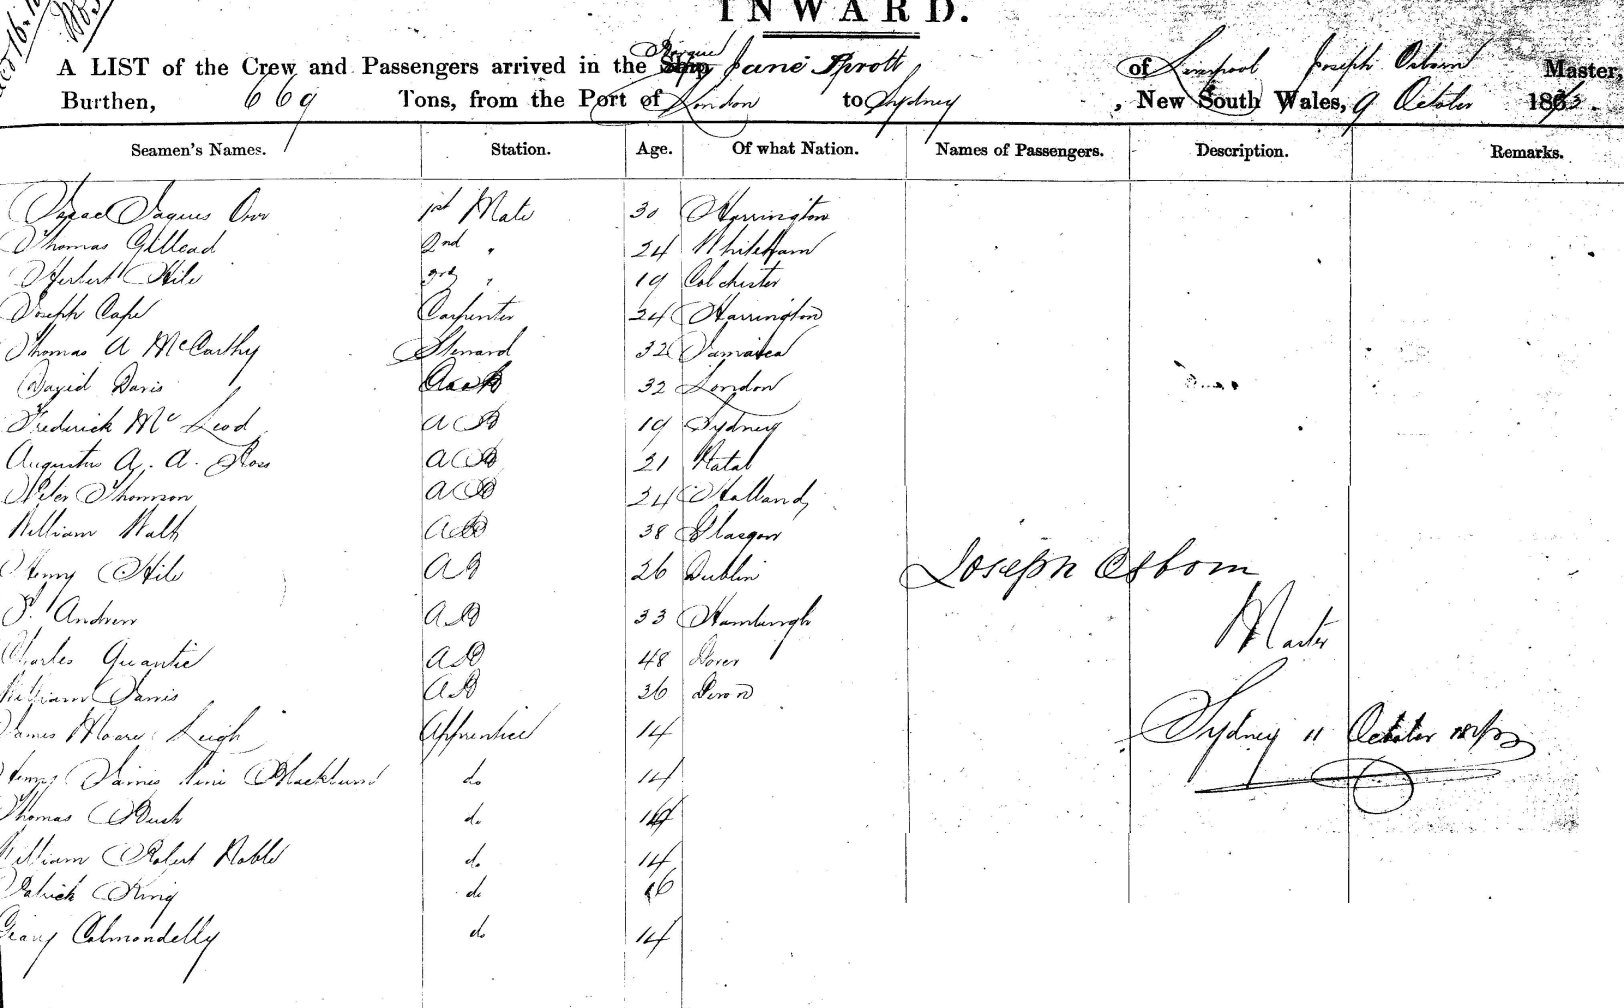 INWARD.
A LIST of the Crew and Passengers arrived in the Barque Jane Sprott of Liverpool Joseph Osborn Master,
Burthen, 669 Tons, from the Port of London to Sydney, New South Wales, 9 October 18
Seamen's Names. Station. Age. Of what Nation. Names of Passengers. Description. Remarks.
Isaac Jaques Orr 1st Mate 30 Harrington
Thomas Gillead 2nd " 24 Whitehaven
Herbert Hile 3rd " 19 Colchester
Joseph Cape Carpenter 24 Harrington
Thomas A McCarthy Steward 32 Jamaica
David Davis Cook 32 London
Frederick Mc Leod AB 19 Sydney
Augustus G. A. Ross AB 21 Natal
Peter Thomson AB 24 Holland
William Walk AB 38 Glasgow
Henry Hile AB 26 Dublin
Joseph Osborn
P. Andrew AB 33 Hamburgh
Master
Charles Quantie AB 48 Dover
William Janis AB 36 Devon
James Moore Leigh Apprentice 14
Sydney 11 October
Henry James Blackburn do 14
Thomas Buck do
William Robert Noble do 14
Patrick King do 16
Colmondelly do 14